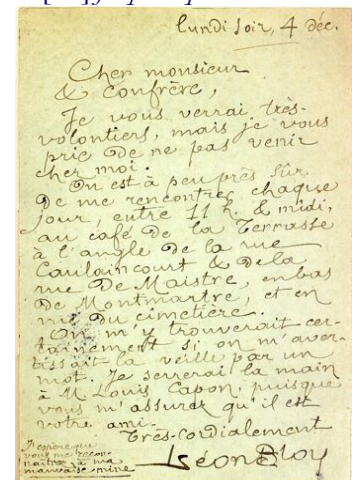 lundi soir, 4 déc.
Cher monsieur
& confrère,
Je vous verrai très-
volontiers, mais je vous
prie de ne pas venir
chez moi.
On est à peu près sûr
de me rencontrer chaque
jour, entre 11 h. & midi,
au café de la Terrasse
à l'angle de la rue
Caulaincourt & de la
rue De Maistre, en bas
de Montmartre, et en
du cimetière.
On m'y trouverait cer-
tainement si on m'aver-
tissait la veille par un
mot. Je serrerai la main
à M. Louis Capon, puisque
vous m'assurez qu'il est
votre ami.
Très-cordialement
Léon Bloy
J'espère que
vous me recon-
naîtrez à ma
mauvaise mine